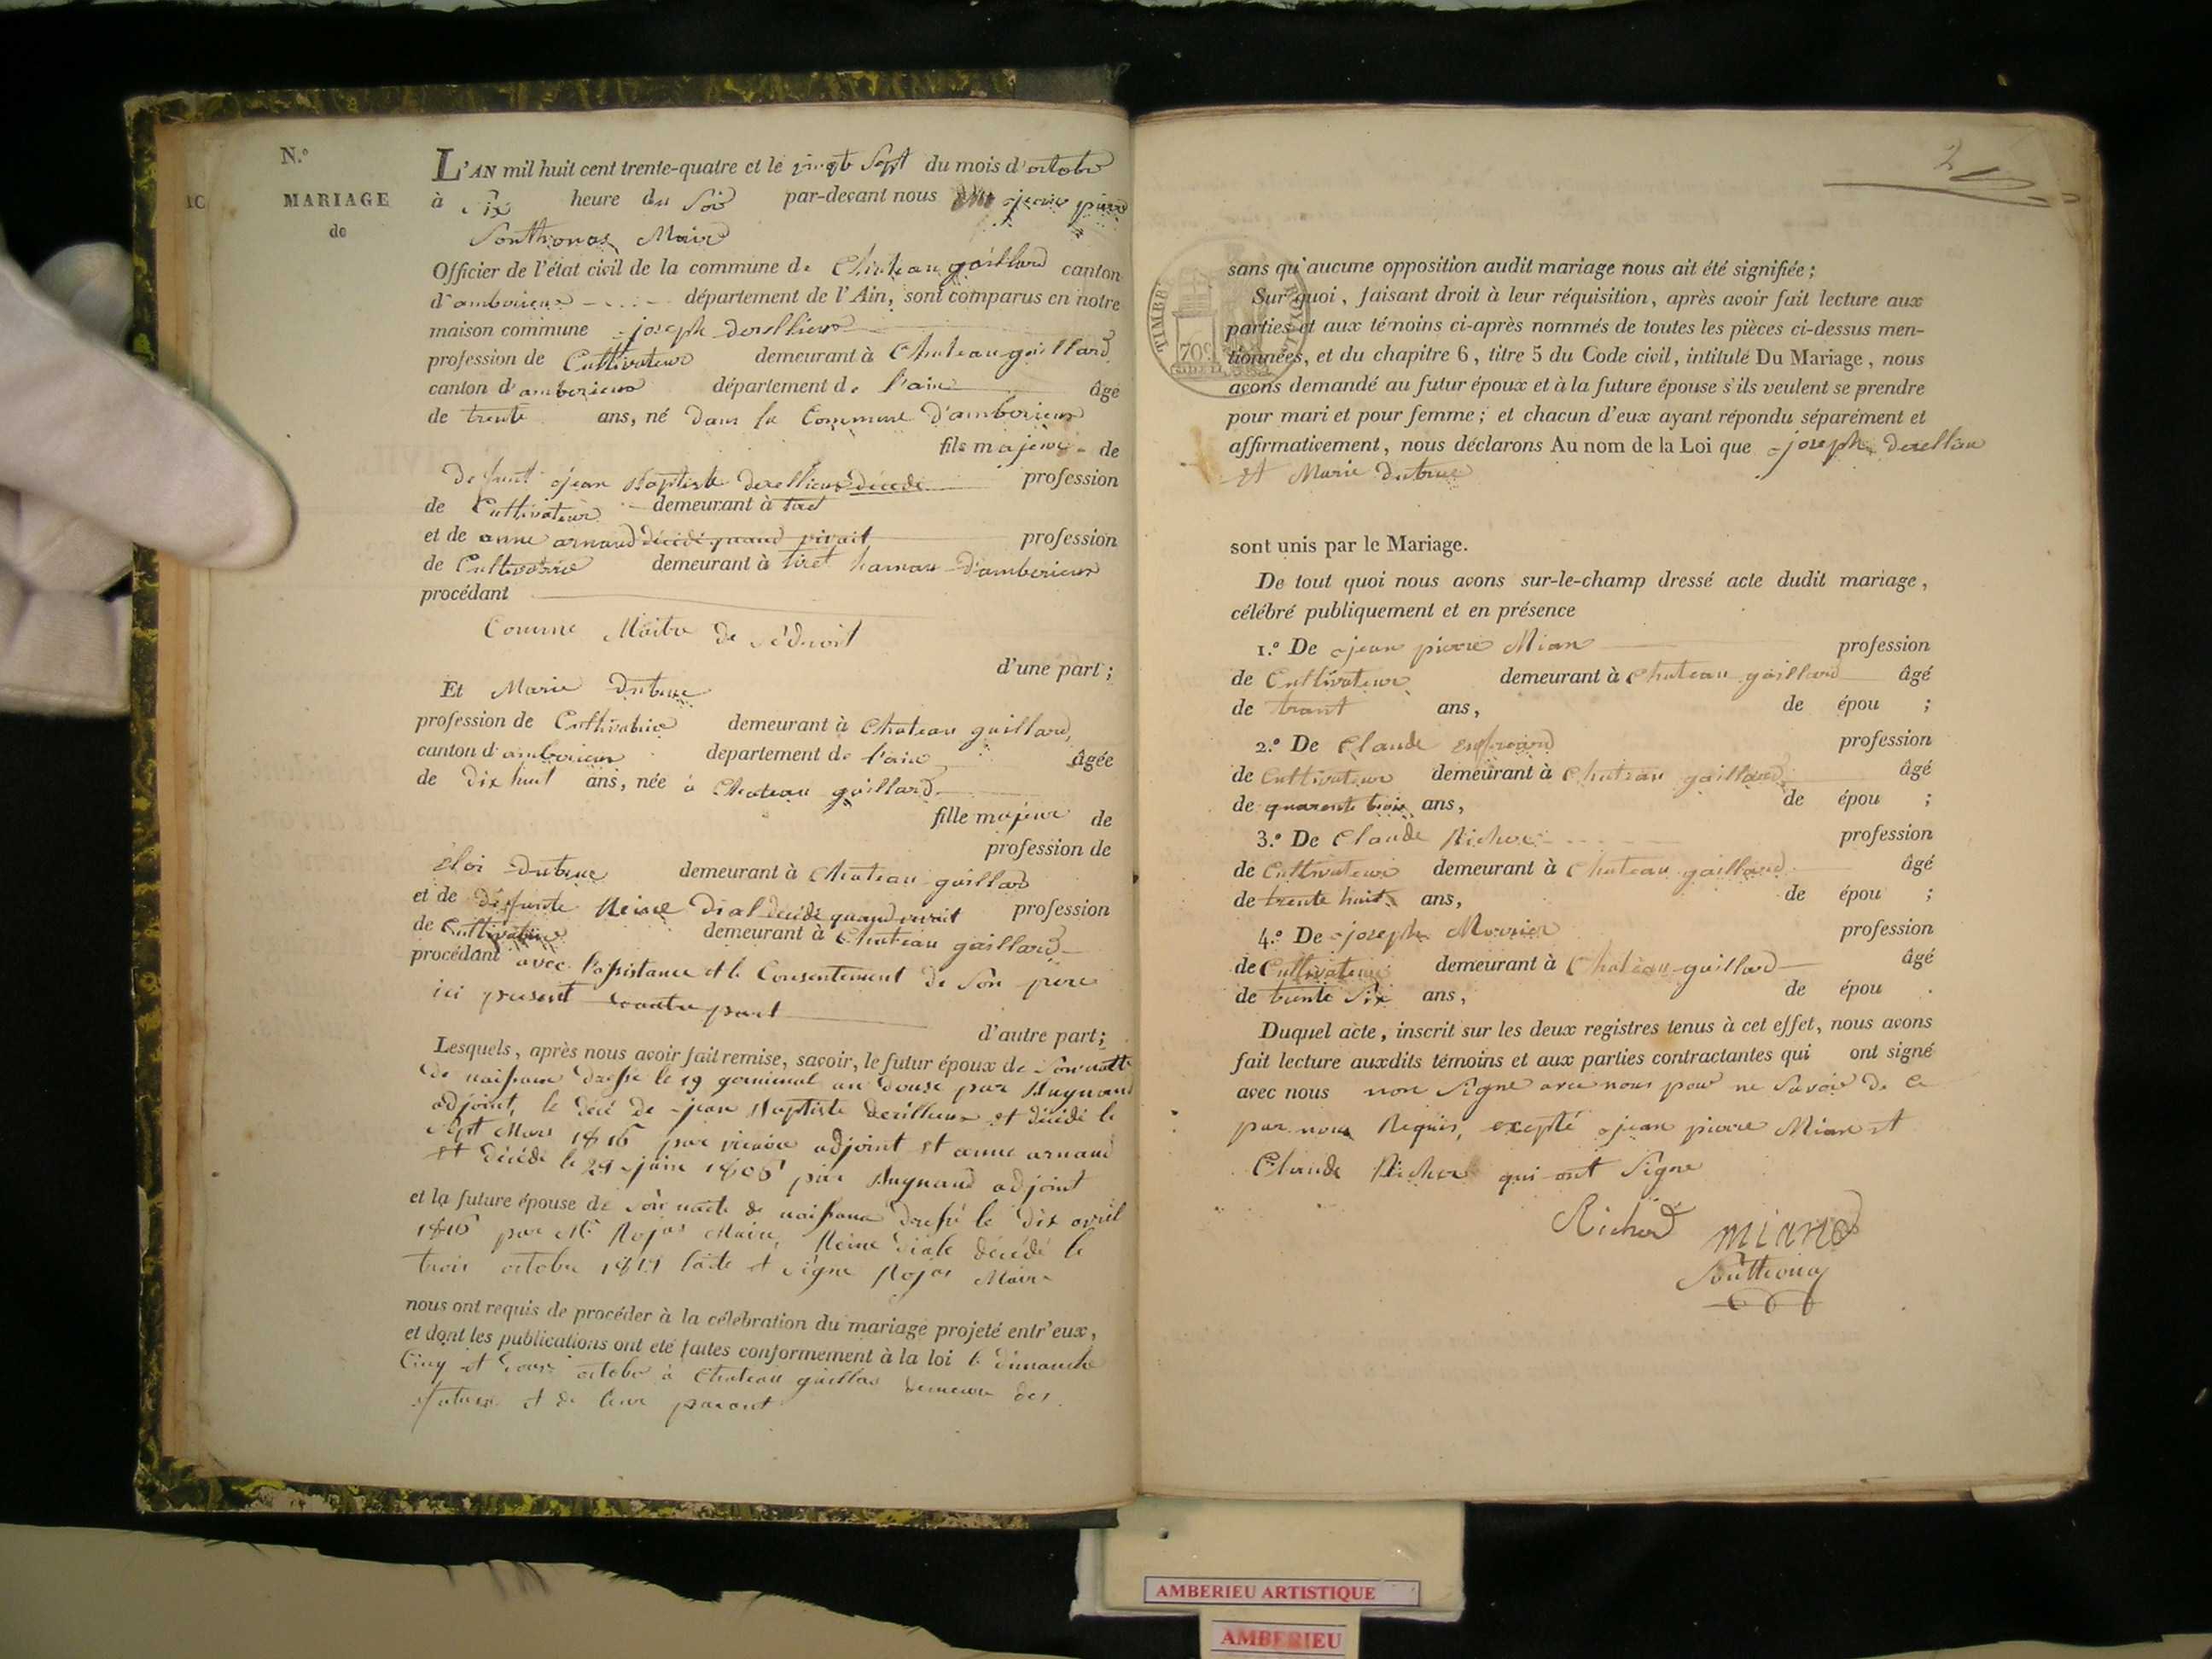 N.°
10 MARIAGE
de
L'AN mil huit cent trente-quatre et le vingt Sept du mois d'octobre
à Six heure du Soir par-devant nous jean pierre
Sonthonas Maire
Officier de l'état civil de la commune de Chateau gaillard canton
d'amberieux département de l'Ain, sont comparus en notre
maison commune joseph derellieux
profession de Cultivateur demeurant à Chateau gaillard
canton d'amberieux département de l'ain âgé
de trente ans, né dans la Commune d'amberieux
fils majeur de
Defunt jean Baptiste derellieux décédé profession
de Cultivateur demeurant à
et de anne arnaud décédé quand vivait profession
de Cultivatrice demeurant à tiret hamau d'amberieux
procédant
Comme Maitre de Sédroit
d'une part ;
Et Marie Dubreue
profession de Cultivatrice demeurant à Chateau gaillard,
canton d'amberieux département de l'ain âgée
de dix huit ans, née à Chateau gaillard
fille majeur de
profession de
éloi Dubreue demeurant à Chateau gaillard
et de défunte Reine Dial décédé quand vivait profession
de Cultivatrice demeurant à Chateau gaillard
procédant avec l'assistance et le Consentement de Son pere
ici présent part
d'autre part ;
Lesquels, après nous avoir fait remise, savoir, le futur époux de Son nacte
de naissance Dressé le 19 germinal an Douse par Buynand
adjoint, le décé de jean Baptiste derellieux et décédé le
Sept Mars 1816 par adjoint et anne arnaud
et décédé le 29 juin 1806 par Buynand adjoint
et la future épouse de Son nacte de naissance dressé le Dix avril
1816 par Mr Rojas Maire, Reine diale décédé le
trois octobre l'acte et signé Rojas Maire
nous ont requis de procéder à la célébration du mariage projeté entr'eux,
et dont les publications ont été faites conformément à la loi le dimanche
Cinq et Douse octobre à Chateau gaillar demeure des
futurs et de leur parant
2
TIMBRE ROYAL
70c
sans qu'aucune opposition audit mariage nous ait été signifiée ;
Sur quoi, faisant droit à leur réquisition, après avoir fait lecture aux
parties et aux témoins ci-après nommés de toutes les pièces ci-dessus men-
tionnées, et du chapitre 6, titre 5 du Code civil, intitulé Du Mariage, nous
avons demandé au futur époux et à la future épouse s'ils veulent se prendre
pour mari et pour femme ; et chacun d'eux ayant répondu séparément et
affirmativement, nous déclarons Au nom de la Loi que joseph derellieu
et Marie Dubreue
sont unis par le Mariage.
De tout quoi nous avons sur-le-champ dressé acte dudit mariage,
célébré publiquement et en présence
1.° De jean pierre Mian profession
de Cultivateur demeurant à Chateau gaillard âgé
de trant ans, de épou ;
2.° De Claude profession
de Cultivateur demeurant à Chateau gaillard âgé
de quarente trois ans, de épou ;
3.° De Claude Richer profession
de Cultivateur demeurant à Chateau gaillard âgé
de trente huit ans, de épou ;
4.° De joseph Mounier profession
de Cultivateur demeurant à Chateau gaillard âgé
de trente Six ans, de épou .
Duquel acte, inscrit sur les deux registres tenus à cet effet, nous avons
fait lecture auxdits témoins et aux parties contractantes qui ont signé
avec nous non Signé avec nous pour ne Savoir De ce
par nous Requis, excepté jean pierre Mian et
Claude Richer qui ont Signé
Richerd miand
Sonthonas
AMBERIEU ARTISTIQUE
AMBERIEU